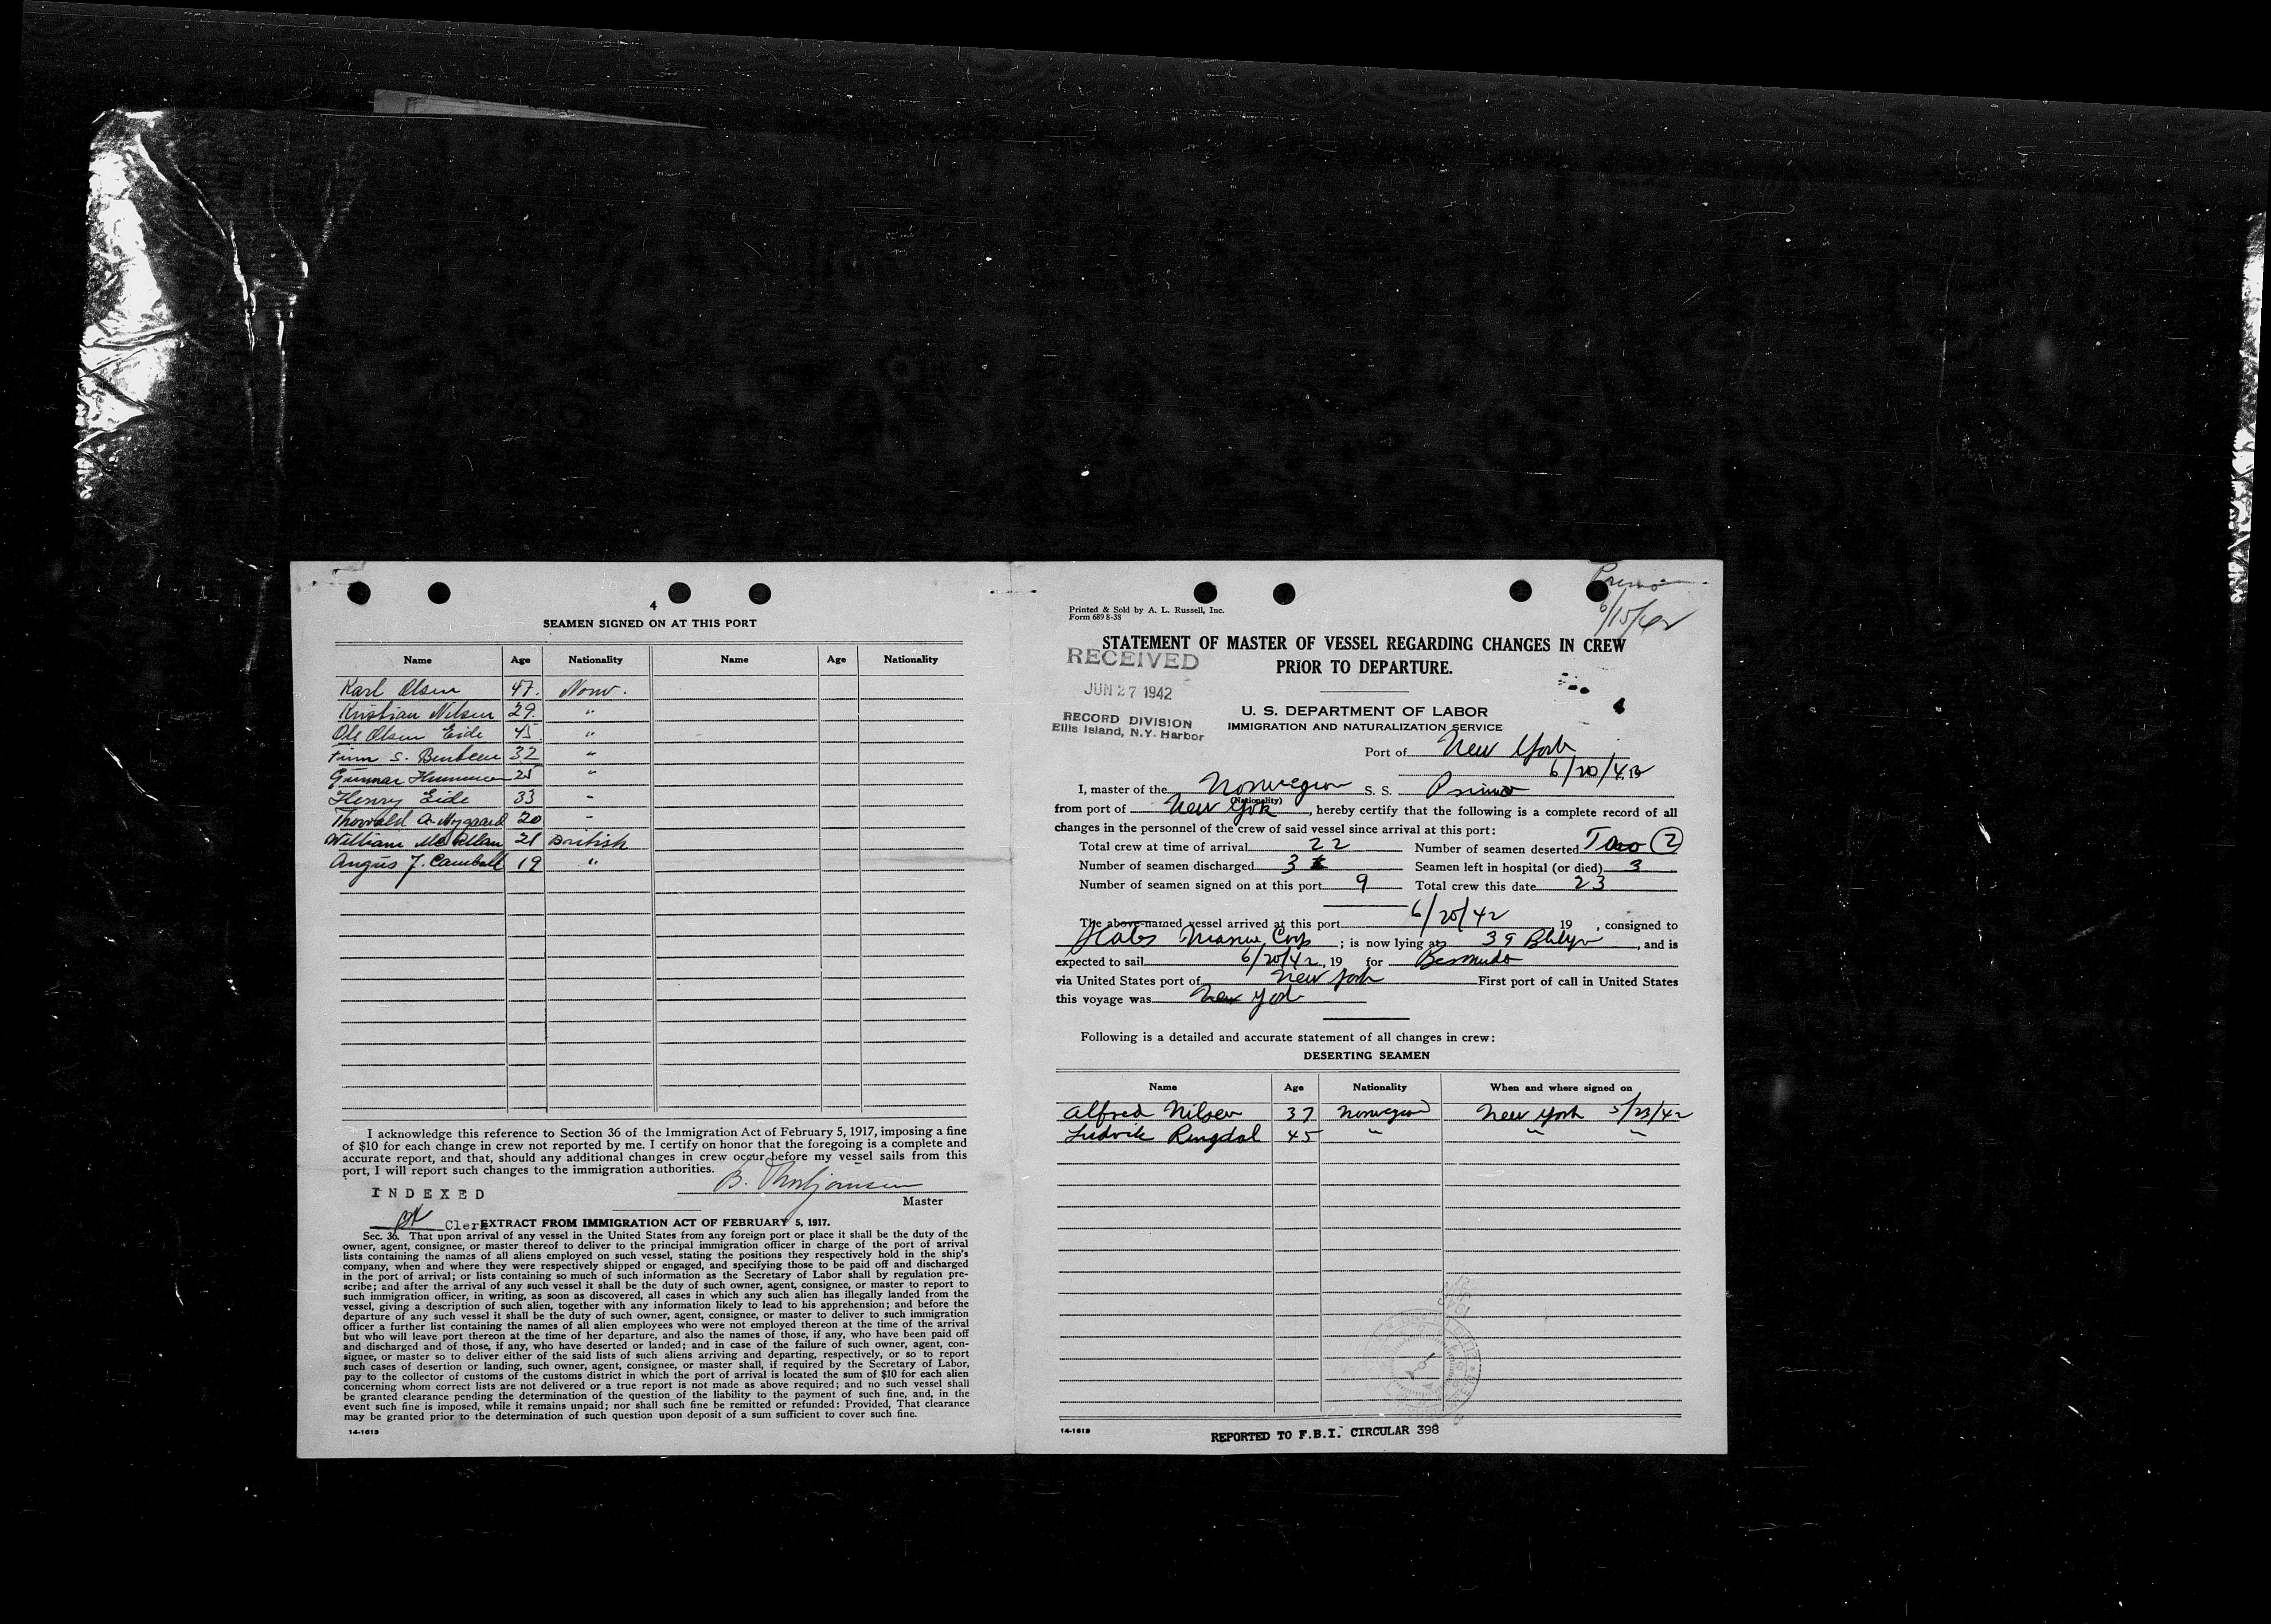 4
SEAMEN SIGNED ON AT THIS PORT
Name Age Nationality Name Age Nationality
Karl Olsen 47. Norw.
Kristian Nilsen 29. "
Ole Olsen Eide 45. "
Finn S. 32 "
Gunnar 25 "
Henry Eide 33 -
Thorvald A. Nygaard 20 -
William McAllan 21 British
Angus J. Cambell 19 "
I acknowledge this reference to Section 36 of the Immigration Act of February 5, 1917, imposing a fine
of $10 for each change in crew not reported by me. I certify on honor that the foregoing is a complete and
accurate report, and that, should any additional changes in crew occur before my vessel sails from this
port, I will report such changes to the immigration authorities.
B. Thorbjørnsen
Master
INDEXED
Clerk
EXTRACT FROM IMMIGRATION ACT OF FEBRUARY 5, 1917.
Sec. 36. That upon arrival of any vessel in the United States from any foreign port or place it shall be the duty of the
owner, agent, consignee, or master thereof to deliver to the principal immigration officer in charge of the port of arrival
lists containing the names of all aliens employed on such vessel, stating the positions they respectively hold in the ship's
company, when and where they were respectively shipped or engaged, and specifying those to be paid off and discharged
in the port of arrival; or lists containing so much of such information as the Secretary of Labor shall by regulation pre-
scribe; and after the arrival of any such vessel it shall be the duty of such owner, agent, consignee, or master to report to
such immigration officer, in writing, as soon as discovered, all cases in which any such alien has illegally landed from the
vessel, giving a description of such alien, together with any information likely to lead to his apprehension; and before the
departure of any such vessel it shall be the duty of such owner, agent, consignee, or master to deliver to such immigration
officer a further list containing the names of all alien employees who were not employed thereon at the time of the arrival
but who will leave port thereon at the time of her departure, and also the names of those, if any, who have been paid off
and discharged and of those, if any, who have deserted or landed; and in case of the failure of such owner, agent, con-
signee, or master so to deliver either of the said lists of such aliens arriving and departing, respectively, or so to report
such cases of desertion or landing, such owner, agent, consignee, or master shall, if required by the Secretary of Labor,
pay to the collector of customs of the customs district in which the port of arrival is located the sum of $10 for each alien
concerning whom correct lists are not delivered or a true report is not made as above required; and no such vessel shall
be granted clearance pending the determination of the question of the liability to the payment of such fine, and, in the
event such fine is imposed, while it remains unpaid; nor shall such fine be remitted or refunded: Provided, That clearance
may be granted prior to the determination of such question upon deposit of a sum sufficient to cover such fine.
14-1613
Primo
6/15/42
Printed & Sold by A. L. Russell, Inc.
Form 689 8-38
STATEMENT OF MASTER OF VESSEL REGARDING CHANGES IN CREW
PRIOR TO DEPARTURE.
RECEIVED
JUN 27 1942
RECORD DIVISION
Ellis Island, N.Y. Harbor
U. S. DEPARTMENT OF LABOR
IMMIGRATION AND NATURALIZATION SERVICE
Port of New York
6/20/42
I, master of the Norwegian S. S. Primo
(Nationality)
from port of New York, hereby certify that the following is a complete record of all
changes in the personnel of the crew of said vessel since arrival at this port:
Total crew at time of arrival 22 Number of seamen deserted Two (2)
Number of seamen discharged 3 Seamen left in hospital (or died) 3
Number of seamen signed on at this port 9 Total crew this date 23
The above-named vessel arrived at this port 6/20/42 19 , consigned to
Marine Corp ; is now lying at 39 Bklyn , and is
expected to sail 6/20/42, 19 for Bermuda
via United States port of New York First port of call in United States
this voyage was New York
Following is a detailed and accurate statement of all changes in crew:
DESERTING SEAMEN
Name Age Nationality When and where signed on
Alfred Nilsen 37 Norwegian New York 5/23/42
Ludvik Ringdal 45 " " "
14-1613
REPORTED TO F.B.I. CIRCULAR 398